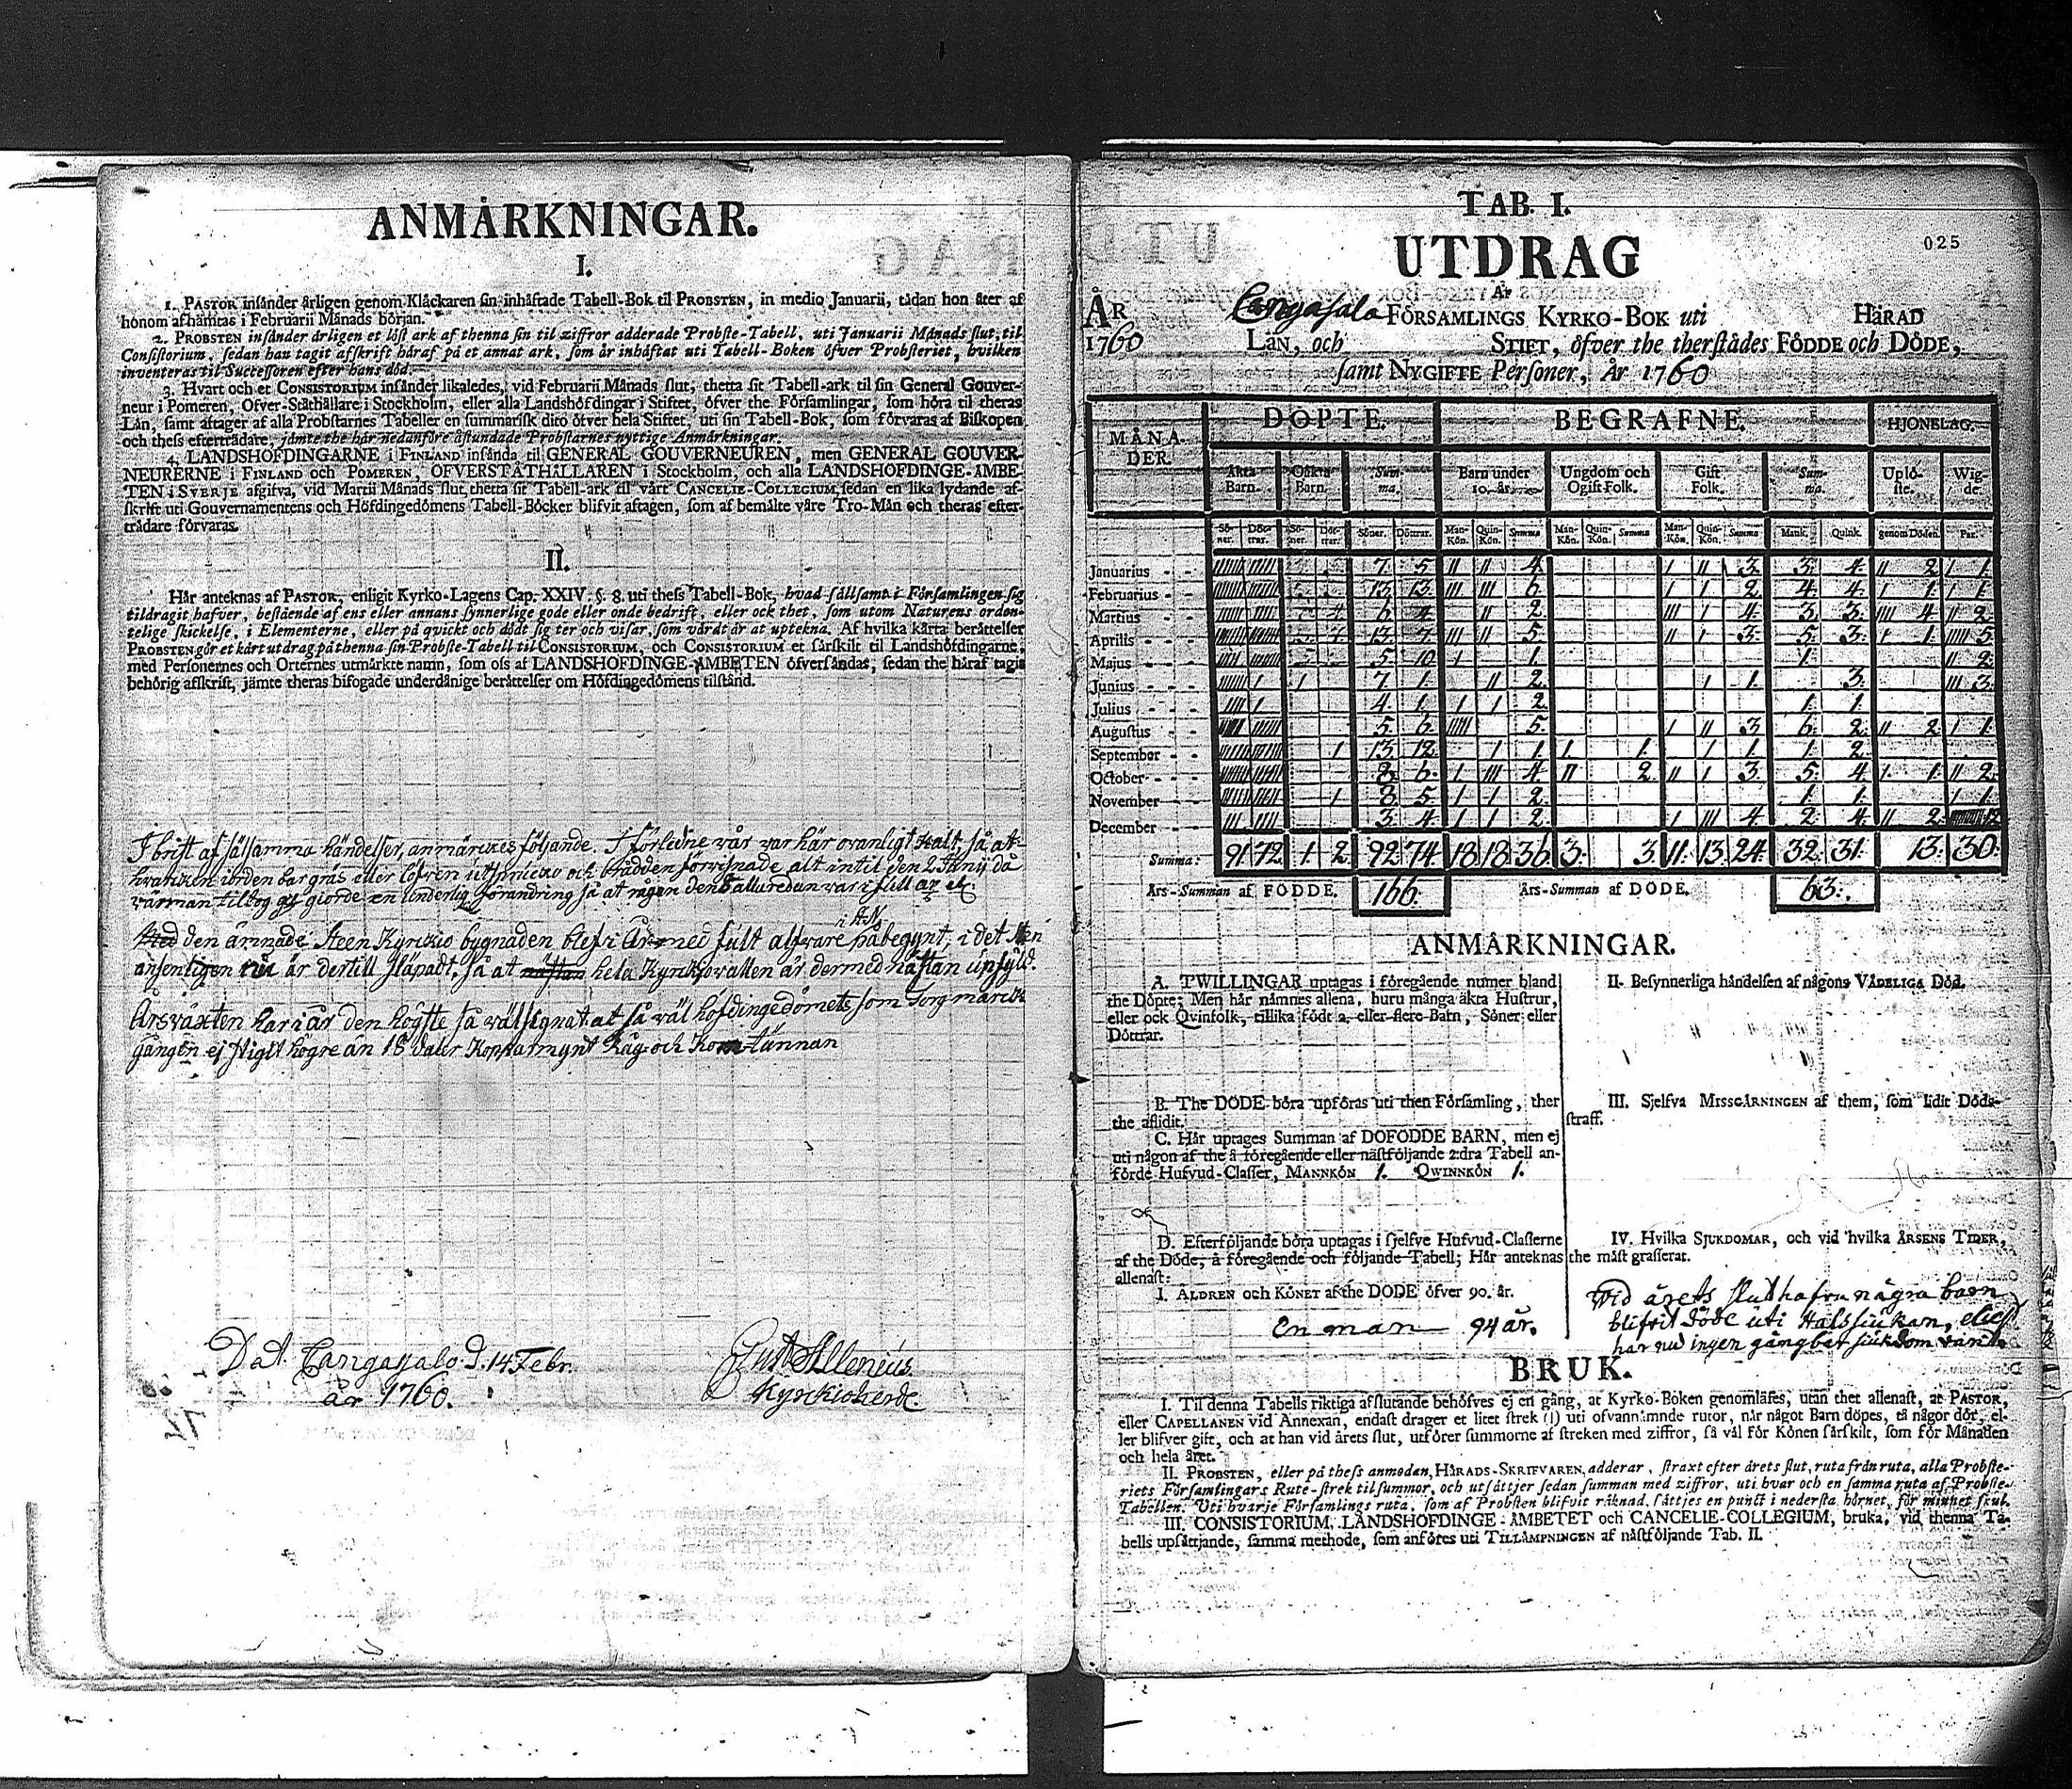 ANMÄRKNINGAR.
I.
1. PASTOR insänder årligen genom Klåckaren sin inhäftade Tabell-Bok til PROBSTEN, in medio Januarii, tädan hon åter af
honom afhämtas i Februarii Månads början.
2. PROBSTEN insänder årligen et löst ark af thenna sin til ziffror adderade Probste-Tabell, uti Januarii Månads slut, til
Consistorium, sedan han tagit afskrift häraf på et annat ark, som är inhäftat uti Tabell-Boken öfver Probsteriet, hvilken
inventeras til Successoren efter hans död.
3. Hvart och et CONSISTORIUM insänder likaledes, vid Februarii Månads slut, thetta sit Tabell-ark til sin General Gouver-
neur i Pomeren, Öfver-Ståthållare i Stockholm, eller alla Landshöfdingar i Stiftet, öfver the Församlingar, som höra til theras
Län, samt aftager af alla Probstarnes Tabeller en summarisk dito öfver hela Stiftet, uti sin Tabell-Bok, som förvaras af Biskopen
och thess efterträdare, jämte the här nedanföre åstundade Probstarnes nyttige Anmärkningar.
4. LANDSHÖFDINGARNE i FINLAND insända til GENERAL GOUVERNEUREN, men GENERAL GOUVER-
NEURERNE i FINLAND och POMEREN, ÖFVERSTÅTHÅLLAREN i Stockholm, och alla LANDSHÖFDINGE-ÄMBE-
TEN i SVERJE afgifva, vid Martii Månads slut, thetta sit Tabell-ark til vårt CANCELIE-COLLEGIUM, sedan en lika lydande af-
skrift uti Gouvernamentens och Höfdingedömens Tabell-Böcker blifvit aftagen, som af bemälte våre Tro-Män och theras efter-
trädare förvaras.
II.
Här anteknas af PASTOR, enligit Kyrko-Lagens Cap. XXIV. §. 8. uti thess Tabell-Bok, hvad sällsamt i Församlingen sig
tildragit hafver, bestående af ens eller annans synnerlige gode eller onde bedrift, eller ock thet, som utom Naturens orden-
telige skickelse, i Elementerne, eller på qvickt och dödt sig ter och visar, som värdt är at uptekna. Af hvilka kårta berättelser
PROBSTEN gör et kårt utdrag på thenna sin Probste-Tabell til CONSISTORIUM, och CONSISTORIUM et särskilt til Landshöfdingarne,
med Personernes och Orternes utmärkte namn, som oss af LANDSHÖFDINGE-ÄMBETEN öfversändas, sedan the häraf tagit
behörig afskrift, jämte theras bifogade underdånige berättelser om Höfdingedömens tilstånd.
I brist af sälsamma händelser, anmärckes följande. I förledne vår var här ovanligt kalt, så at
hvarcken jorden bar gräs eller löfven utspruckо och brådden förvisnade alt intil den 2 Junij då
värman tiltog och giorde en underlig förandring så at rågen den allaredan var i full ax etc.
den ämnade Steen Kyrckio bygnaden blef i År med fult alfvare påbegynt, i det Sten
ansenligen är dertill släpadt, så at hela Kyrckiovallen är dermed nästan upfyld.
Årsväxten har i år den högste så välsignat at så väl höfdingedömets som Torg marck
gången ej stigit högre än 18 daler Kopparmynt Råg och Korn tunnan
Dat Cangasalo d. 14 Febr.
år 1760.
Gust Allenius.
Kyrckioherde.
TAB. I.
UTDRAG
025
Af
ÅR Cangasala FÖRSAMLINGS KYRKO-BOK uti HÄRAD
1760 LÄN, och STIFT, öfver the therstädes FÖDDE och DÖDE,
samt NYGIFTE Personer, År 1760
MÅNA-DER. DÖPTE. BEGRAFNE. HJONELAG.
Äkta Barn. Oäkta Barn. Sum-ma. Barn under 10. år. Ungdom och Ogift Folk. Gift Folk. Sum-ma. Uplö-ste. Wig-de.
Sö-ner. Döt-trar. Sö-ner. Döt-trar. Söner. Döttrar. Man-Kön. Quin-Kön. Summa Man-Kön. Quin-Kön. Summa Man-Kön. Quin-Kön. Summa Mank. Quink. genom Döden. Par.
Januarius 7. 5 II II 4. I II 3. 3. 4. II 2. I 1.
Februarius 13. 13. III III 6. I I 2. 4. 4. I 1. I 1.
Martius 6. 4. II 2. III I 4. 3. 3. IIII 4. II 2.
Aprilis 13. 7. III II 5. II I 3. 5. 3. I 1. IIIII 5.
Majus 5. 10. I 1. 1. II 2.
Junius 7. 1. II 2. I 1. 3. III 3.
Julius 4. 1. I I 2. 1. 1.
Augustus 5. 6. IIIII 5. I II 3. 6. 2. II 2. I 1.
September 13. 12. I 1. I 1. I 1. 1. 2.
October 8. 6. I III 4. II 2. II I 3. 5. 4. I 1. II 2.
November 8 5. I I 2. 1. 1. I 1.
December 3. 4. I I 2. I III 4. 2. 4. II 2. 12
Summa: 91. 72. 1. 2. 92. 74. 18. 18. 36. 3. 3. 11. 13. 24. 32. 31. 13. 30.
Års-Summan af FÖDDE. 166. Års-Summan af DÖDE. 63.
ANMÄRKNINGAR.
A. TWILLINGAR uptagas i föregående numer bland
the Döpte; Men här nämnes allena, huru många äkta Hustrur,
eller ock Qvinfolk, tillika födt 2. eller flere Barn, Söner eller
Döttrar.
B. The DÖDE böra upföras uti then Församling, ther
the aflidit.
C. Här uptages Summan af DÖFÖDDE BARN, men ej
uti någon af the å föregående eller nästföljande 2:dra Tabell an-
förde Hufvud-Classer, MANNKÖN 1. QWINNKÖN 1.
D. Efterföljande böra uptagas i sjelfve Hufvud-Classerne
af the Döde, å föregående och följande Tabell; Här anteknas
allenast:
I. ÅLDREN och KÖNET af the DÖDE öfver 90. år.
En man 94 år.
II. Besynnerliga händelsen af någons VÅDELIGA Död.
III. Sjelfva MISSGÄRNINGEN af them, som lidit Döds-
straff.
IV. Hvilka SJUKDOMAR, och vid hvilka ÅRSENS TIDER,
the mäst grasserat.
Wid årets slut hafva några barn
blifvit döde uti Halssiukan, eliest
har nu ingen gångbar siukdom varit.
BRUK.
I. Til denna Tabells riktiga afslutande behöfves ej en gång, at Kyrko-Boken genomläses, utan thet allenast, at PASTOR,
eller CAPELLANEN vid Annexan, endast drager et litet strek (|) uti ofvannämnde rutor, när något Barn döpes, tå någor dör, el-
ler blifver gift, och at han vid årets slut, utförer summorne af streken med ziffror, så väl för Könen särskilt, som för Månaden
och hela året.
II. PROBSTEN, eller på thess anmodan, HÄRADS-SKRIFVAREN, adderar, straxt efter årets slut, ruta från ruta, alla Probste-
riets Församlingars Rute-strek til summor, och utsättjer sedan summan med ziffror, uti hvar och en samma ruta af Probste-
Tabellen. Uti hvarje Församlings ruta, som af Probsten blifvit räknad, sättjes en punct i nedersta hörnet, för minnet skul.
III. CONSISTORIUM, LANDSHÖFDINGE-ÄMBETET och CANCELIE-COLLEGIUM, bruka, vid thenna Ta-
bells upsättjande, samma methode, som anföres uti TILLÄMPNINGEN af nästföljande Tab. II.